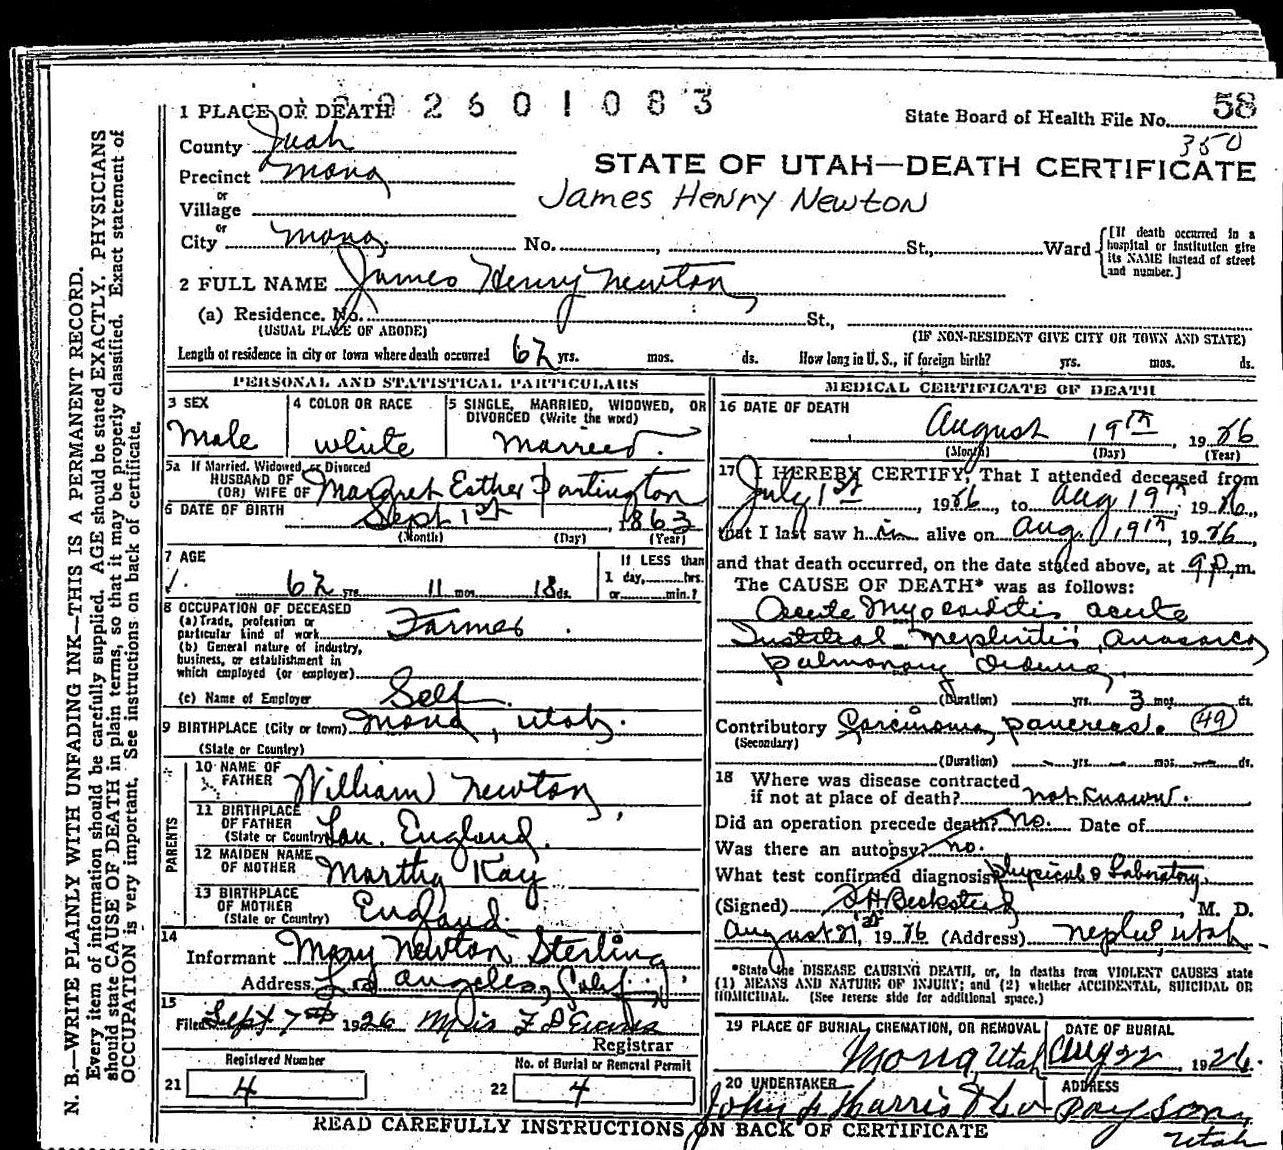 1 PLACE OF DEATH 2601083
State Board of Health File No. 58
350
County Juab
Precinct Mona
STATE OF UTAH—DEATH CERTIFICATE
James Henry Newton
or
Village
or
City Mona No. St., Ward
[If death occurred in a
hospital or institution give
its NAME instead of street
and number.]
2 FULL NAME James Henry Newton
(a) Residence. No. St.,
(USUAL PLACE OF ABODE) (IF NON-RESIDENT GIVE CITY OR TOWN AND STATE)
Length of residence in city or town where death occurred 62 yrs. mos. ds. How long in U. S., if foreign birth? yrs. mos. ds.
PERSONAL AND STATISTICAL PARTICULARS
3 SEX
Male
4 COLOR OR RACE
white
5 SINGLE, MARRIED, WIDOWED, OR
DIVORCED (Write the word)
Married
5a If Married, Widowed, or Divorced
HUSBAND OF
(OR) WIFE OF Margret Esther Partington
6 DATE OF BIRTH Sept 1st, 1863
(Month) (Day) (Year)
7 AGE
62 yrs. 11 mos. 18 ds.
If LESS than
1 day, hrs.
or min.?
8 OCCUPATION OF DECEASED
(a) Trade, profession or
particular kind of work Farmer
(b) General nature of industry,
business, or establishment in
which employed (or employer)
(c) Name of Employer Self
9 BIRTHPLACE (City or town) Mona, Utah.
(State or Country)
PARENTS
10 NAME OF
FATHER William Newton
11 BIRTHPLACE
OF FATHER
(State or Country) Lan. England.
12 MAIDEN NAME
OF MOTHER Martha Kay
13 BIRTHPLACE
OF MOTHER
(State or Country) England.
14
Informant Mary Newton Sterling
Address Los Angeles, Calif
15
Filed Sept 7th 1926 Mrs F D Evans
Registrar
Registered Number
21 4
No. of Burial or Removal Permit
22 4
MEDICAL CERTIFICATE OF DEATH
16 DATE OF DEATH
August 19th, 1926
(Month) (Day) (Year)
17 I HEREBY CERTIFY, That I attended deceased from
July 1st, 1926, to Aug 19th, 1926,
that I last saw him alive on Aug. 19th, 1926,
and that death occurred, on the date stated above, at 9 p.m.
The CAUSE OF DEATH* was as follows:
Acute Myocarditis acute
Nephritis, Anasarca
pulmonary
(Duration) yrs. 3 mos. ds.
Contributory Carcinoma, pancreas. (49)
(Secondary)
(Duration) yrs. mos. ds.
18 Where was disease contracted
if not at place of death? not known.
Did an operation precede death? No. Date of
Was there an autopsy? no.
What test confirmed diagnosis physical & Laboratory
(Signed) Beckstead, M. D.
August 21, 1926 (Address) Nephi, Utah
*State the DISEASE CAUSING DEATH, or, in deaths from VIOLENT CAUSES state
(1) MEANS AND NATURE OF INJURY; and (2) whether ACCIDENTAL, SUICIDAL OR
HOMICIDAL. (See reverse side for additional space.)
19 PLACE OF BURIAL, CREMATION, OR REMOVAL
Mona, Utah
DATE OF BURIAL
Aug 22 1926.
20 UNDERTAKER
John Harris & Co
ADDRESS
Payson,
Utah
READ CAREFULLY INSTRUCTIONS ON BACK OF CERTIFICATE
N. B.—WRITE PLAINLY WITH UNFADING INK—THIS IS A PERMANENT RECORD.
Every item of information should be carefully supplied. AGE should be stated EXACTLY. PHYSICIANS
should state CAUSE OF DEATH in plain terms, so that it may be properly classified. Exact statement of
OCCUPATION is very important. See instructions on back of certificate.